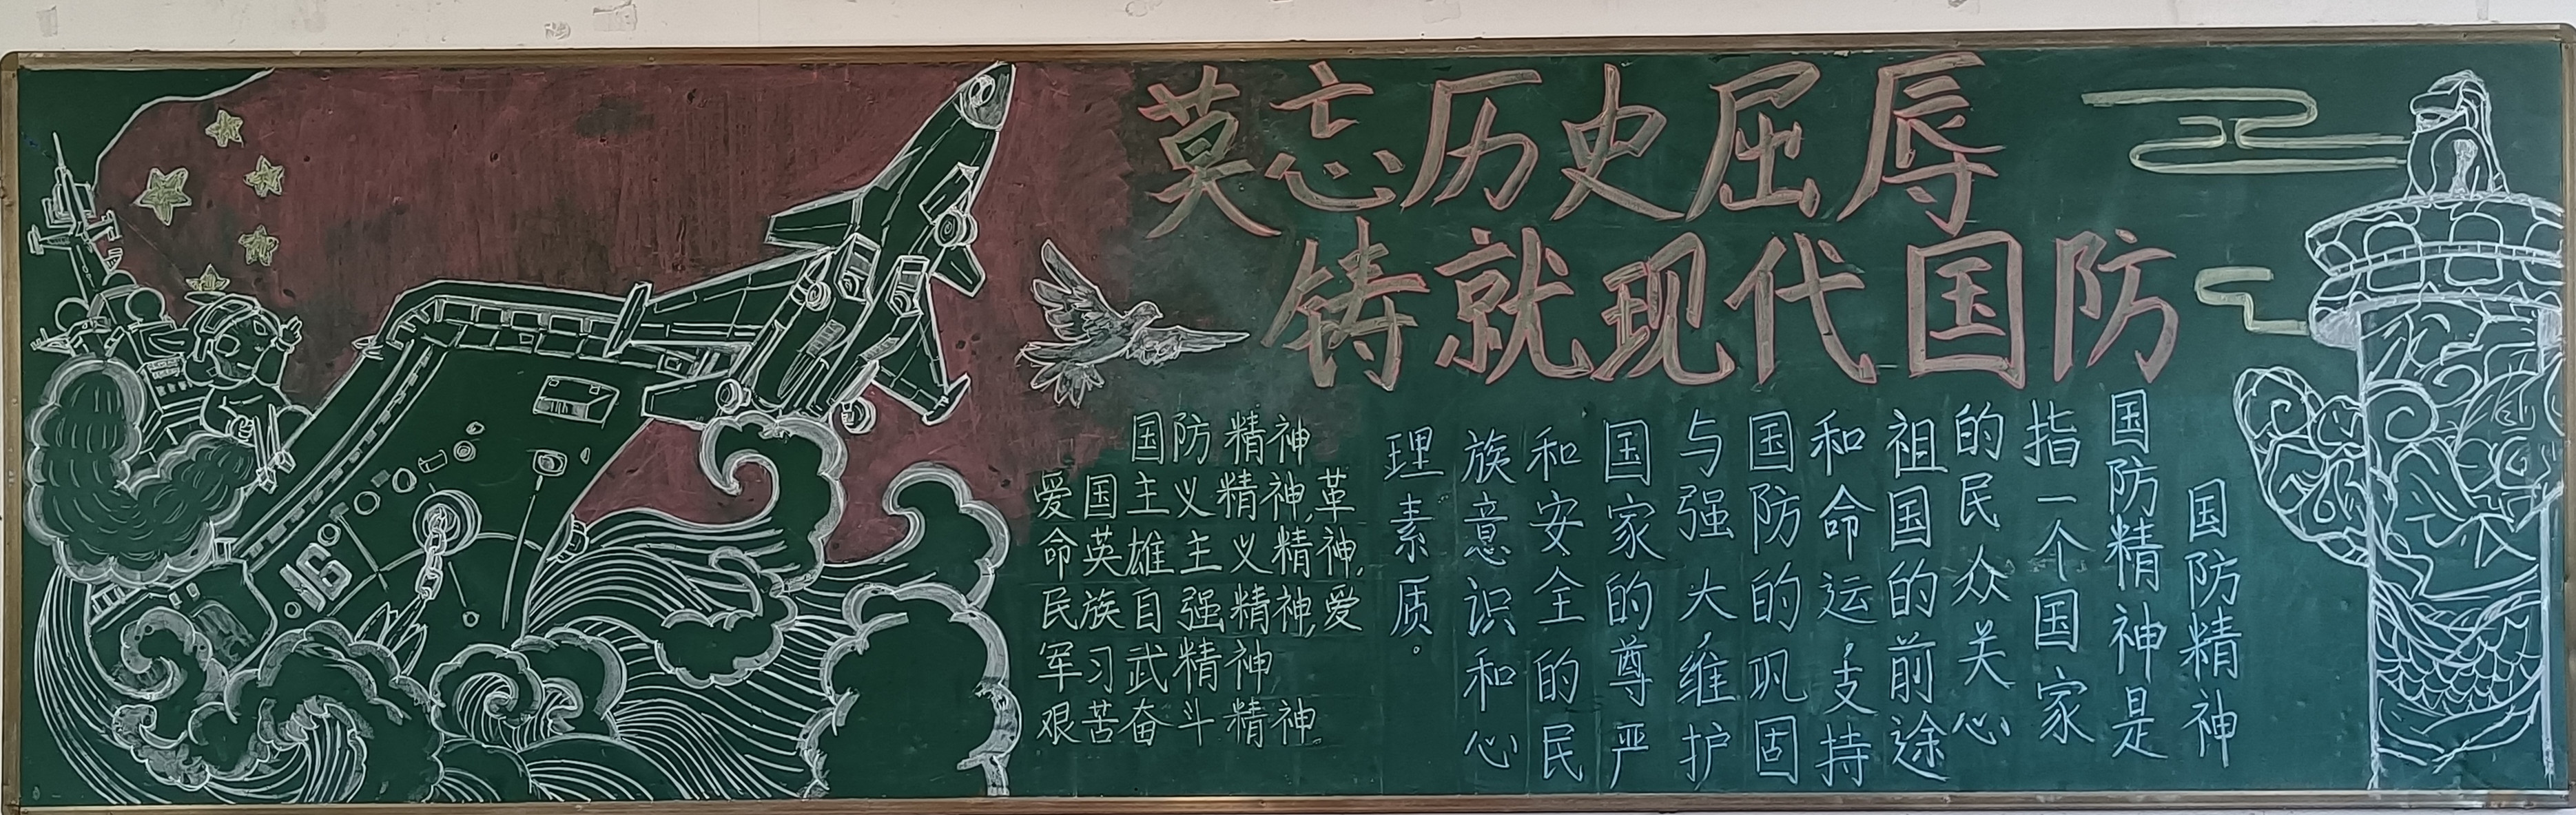 莫忘历史屈辱
铸就现代国防
国防精神
国防精神是
指一个国家
的民众关心
祖国的前途
和命运,支持
国防的巩固
与强大,维护
国家的尊严
和安全的民
族意识和心
理素质。
国防精神
爱国主义精神,革
命英雄主义精神,
民族自强精神,爱
军习武精神
艰苦奋斗精神
16